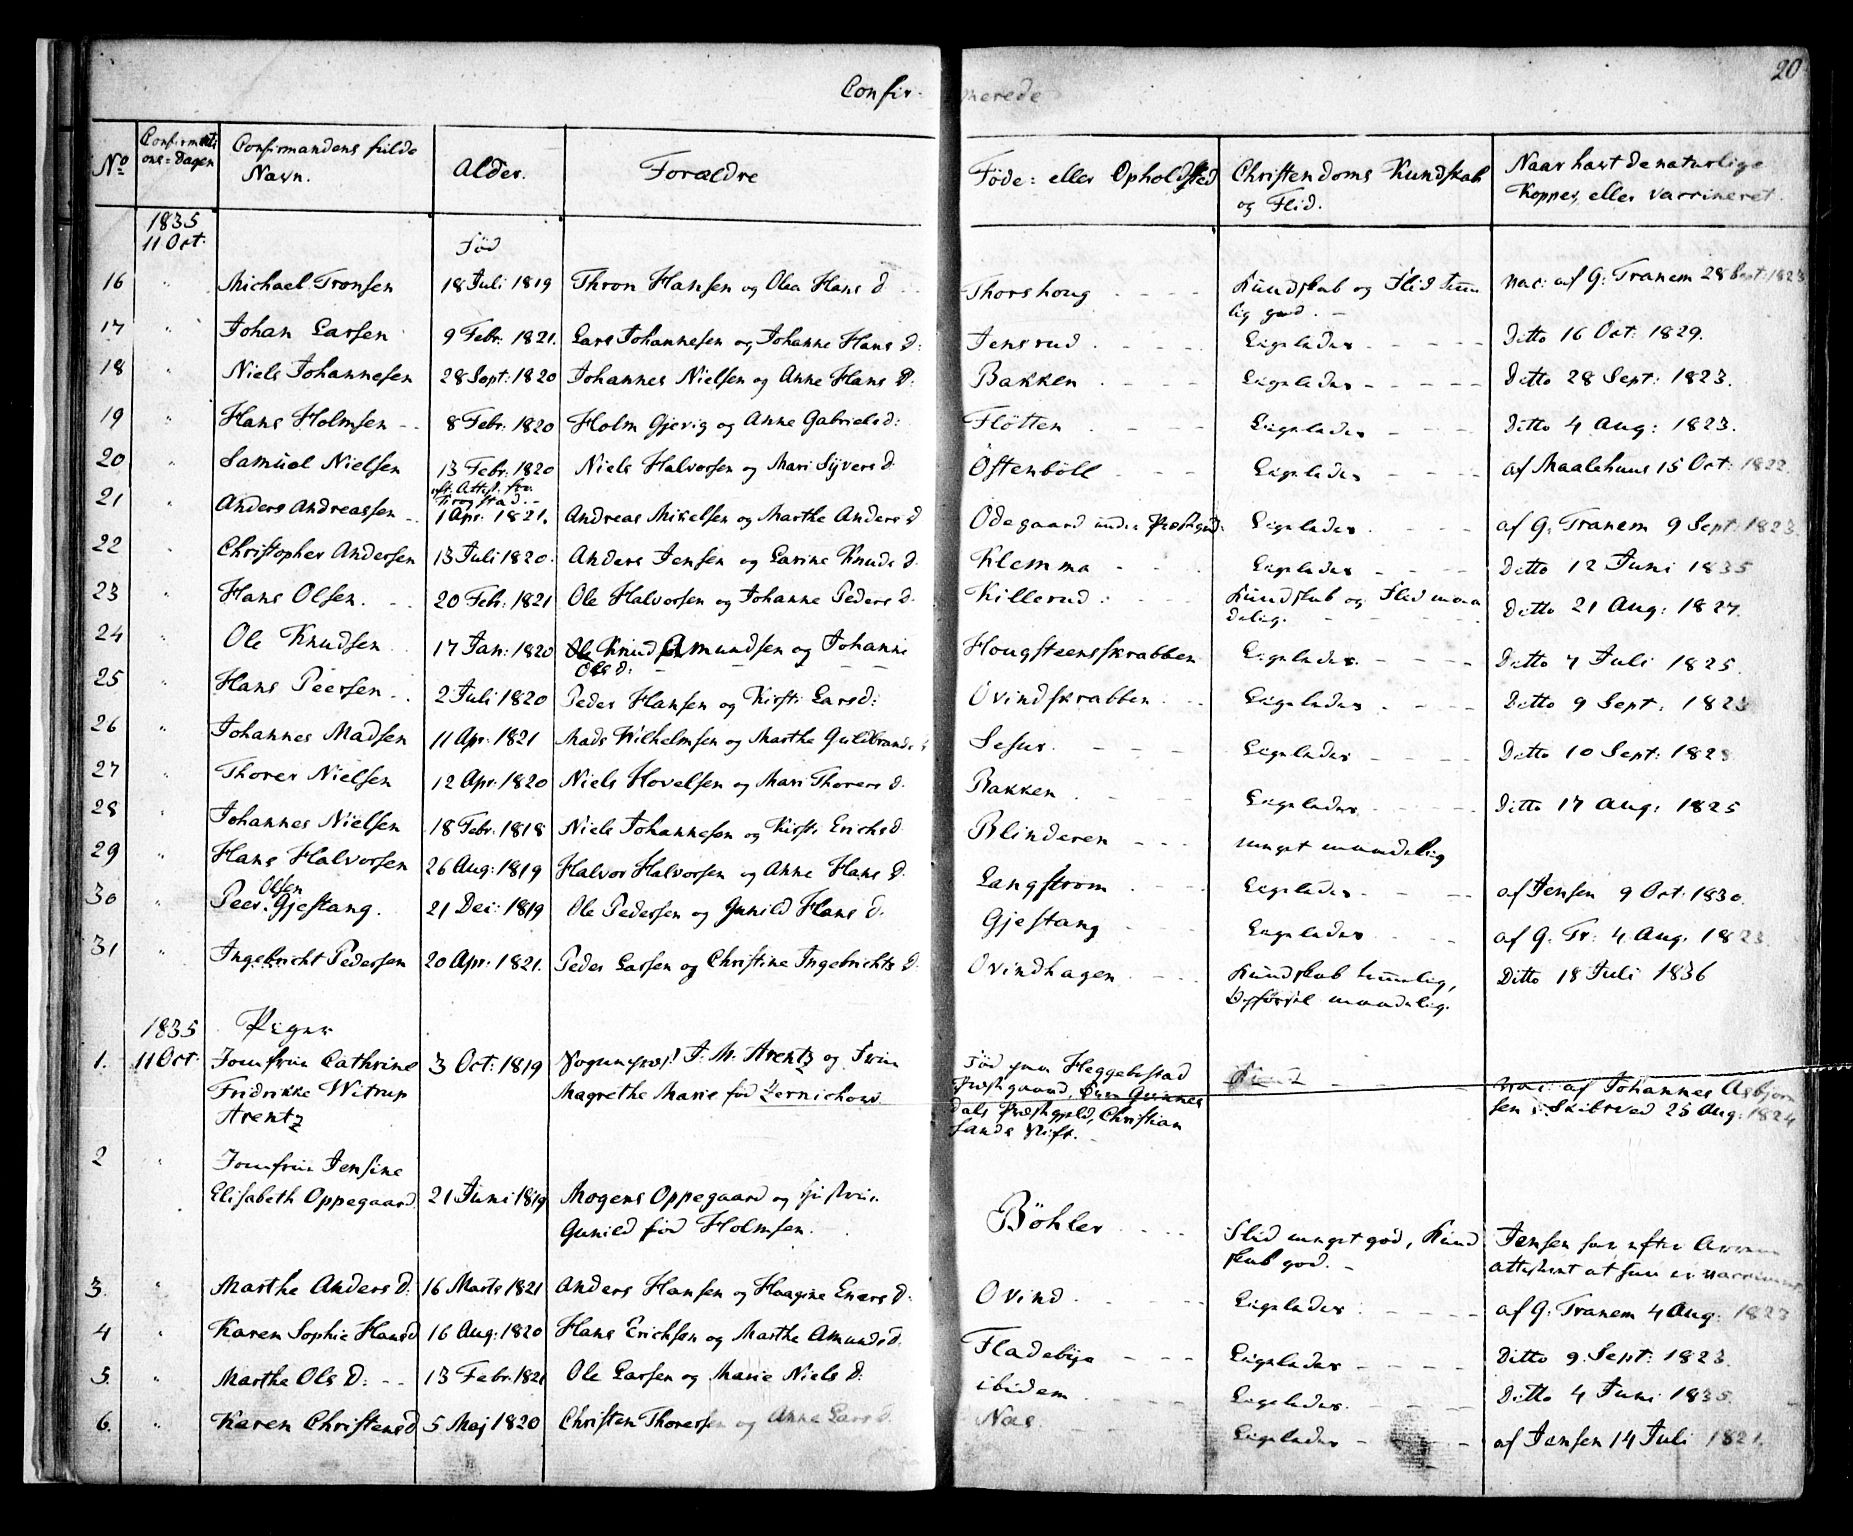 Confir- merede
20
No
Confirmati
ons-Dagen
Confirmandens fulde
Navn.
Alder.
Forældre
Föde: eller Opholdsted
Christendoms Kundskab
og Flid.
Naar havt de naturlige
Kopper, eller vaccineret.
1835
11 Oct:
Föd
16 " Michael Tronsen 18 Juli 1819 Thron Hansen og Olea Hans d Thorshoug - - - Kundskab og Flid tem
lig god. - vac: af G: Tranem 28 Sept: 1823
17 " Johan Larsen 9 Febr: 1821. Lars Johannesen og Johanne Hans d: Jensrud - - - Ligeledes - - - Ditto 16 Oct: 1829.
18 " Niels Johannesen 28 Sept: 1820 Johannes Nielsen og Anne Hans d: Bakken - - - Ligeledes - - - Ditto 28 Sept: 1823.
19 " Hans Holmsen - - 8 Febr: 1820 Holm Gjevig og Anne Gabriels d: Flötten - - - Ligeledes - - - Ditto 4 Aug: 1823.
20 " Samuel Nielsen 13 Febr: 1820 Niels Halvorsen og Mari Sÿvers d Östenböll - - - Ligeledes - - - af Maalehuus 15 Oct: 1822.
eft. Attest fra
21 " Anders Andreassen - - 1 Apr: 1821. Andreas Mikelsen og Marthe Anders d Ödegaard under Ligeledes - - - af G: Tranem 9 Sept: 1823.
22 " Christopher Andersen 13 Juli 1820. Anders Jensen og Larine Knuds d. Klemma - - - Ligeledes - - - Ditto 12 Juni 1835
23 " Hans Olsen. - - 20 Febr: 1821 Ole Halvorsen og Johanne Peders d. Killerud: - - - Kundskab og Flid maa
delig. - - - Ditto 21 Aug: 1827.
24 " Ole Knudsen 17 Jan: 1820 Ole Knud Amundsen og Johanne
Ols d: - - - Hougsteensskrabben Ligeledes. - - - Ditto 7 Juli 1825.
25 " Hans Peersen - - 2 Juli 1820 Peder Hansen og Kirsti Lars d: Ovindskrabben - - Ligeledes - - - Ditto 9 Sept: 1823
26 " Johannes Madsen 11 Apr: 1821 Mads Wilhelmsen og Marthe Guldbrands d Sefur. - - - Ligeledes - - - Ditto 10 Sept: 1823
27 " Thorer Nielsen 12 Apr: 1820 Niels Hovelsen og Mari Thorers d. Bakken - - - Ligeledes - - - Ditto 17 Aug: 1825
28 " Johannes Nielsen 18 Febr: 1818 Niels Johannesen og Kirsti Erichs d. Blinderen - - - meget maadelig
29 " Hans Halvorsen 26 Aug: 1819 Halvor Halvorsen og Anne Hans d. Langstrøm - - - Ligeledes - - - af Jensen 9 Oct: 1830.
Olsen
30 " Peer Gjestang. 21 Dec: 1819 Ole Pedersen og Gunild Hans d. Gjestang - - - Ligeledes - - - af G. Tr: 4 Aug. 1823.
31 " Ingebricht Pedersen 20 Apr: 1821. Peder Larsen og Christine Ingebrichts d. Ovindhagen - - - Kundskab temelig,
maadelig. Ditto 18 Juli 1836
1835 Piger
1. 11 Oct: Jomfrue Cathrine
Fridrikke Witrup
Arentz 3 Oct: 1819 Sognepræst F. M. Arentz og Frue
Magrethe Marie föd Zernichow Föd paa Heggebostad
Præstgaard,
dals Præstgjeld, Christian
sands Stift. - - - - vac: af Johannes Asbjorn
sen i Skibtved 25 Aug: 1824
2 " Jomfrue Jensine
Elisabeth Oppegaard 21 Juni 1819 Mogens Oppegaard og Hustrue
Gunild föd Holmsen. Böhler - - - Flid meget god, Kund
skab god. - Jensen har efter
attestert at hun er vaccineret
3. " Marthe Anders d: 16 Marts 1821 Anders Hansen og Haagine Eners d: Ovind - - - Ligeledes - - - af G: Tranem 4 Aug: 1823
4 " Karen Sophie Hans d 16 Aug: 1820 Hans Erichsen og Marthe Amunds d. Fladebye - - - Ligeledes - - - Ditto 9. Sept: 1823.
5. " Marthe Ols d: - - 13 Febr: 1821 Ole Larsen og Marie Niels d: ibidem - - - Ligeledes. - - - Ditto 4 Juni 1835.
6. " Karen Christens d 5 Maj 1820 Christen Thoresen og Anne Lars d. Nas - - - Ligeledes - - - af Jensen 14 Juli 1821.